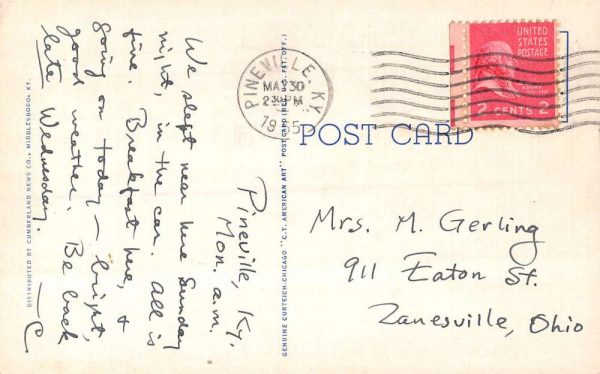 Pineville, Ky.
Mon. a.m.
We slept near here Sunday
night, in the car. All is
fine. Breakfast here, +
going on today — bright,
good weather. Be back
late Wednesday.
— C
DISTRIBUTED BY CUMBERLAND NEWS CO., MIDDLESBORO, KY.
GENUINE CURTEICH-CHICAGO "C.T. AMERICAN ART" POST CARD (REG. U.S. PAT. OFF.)
PINEVILLE, KY.
MAY 30
2 30 PM
19
UNITED
STATES
POSTAGE
ADAMS
2 CENTS 2
POST CARD
Mrs. M. Gerling
911 Eaton St.
Zanesville, Ohio